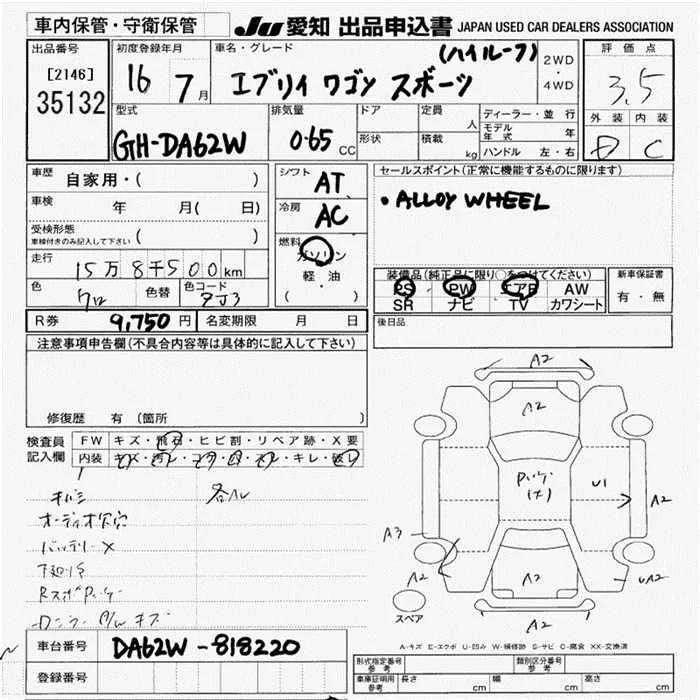 車内保管・守衛保管
JU 愛知 出品申込書 JAPAN USED CAR DEALERS ASSOCIATION
出品番号
[2146]
35132
初度登録年月
16 7月
車名・グレード
(ハイルーフ)
エブリイ ワゴン スポーツ
2WD
・
4WD
評価点
3.5
外装 内装
D C
型式
GH-DA62W
排気量
0.65 CC
ドア
形状
定員
人
積載
kg
ディーラー・並行
モデル年式 年
ハンドル 左・右
車歴 自家用・( )
車検 年 月(日)
受検形態
車検付きのみ記入して下さい ( )
走行
15万8千500km
色
クロ
色替
色コード
ZJ3
シフト AT
冷房 AC
燃料
ガソリン
軽・油
( )
セールスポイント(正常に機能するものに限ります)
・ALLOY WHEEL
装備品(純正品に限り○をつけてください)
PS PW エアB AW
SR ナビ TV カワシート
新車保証書
有・無
後日品
R券 9,750円 名変期限 月 日
注意事項申告欄(不具合内容等は具体的に記入して下さい)
修復歴 有(箇所 )
検査員
記入欄
FW キズ・飛石・ヒビ割・リペア跡・X要
内装 キズ・汚レ・コゲ・凹・スレ・キレ・破レ
オーディオ欠穴
バッテリーX
下廻りS
A2
A2
U1
A2
A3
A2
A2
UA2
A2
スペア
A-キズ E-エクボ U-凹み W-補修跡 S-サビ C-腐食 XX-交換済
車台番号 DA62W-818220
登録番号
形式指定番号
参考
類別区分番号
参考
車庫証明用
参考
長さ cm 幅 cm 高さ cm